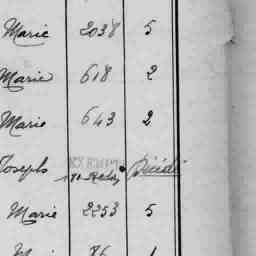 Marie 2038 5
Marie 618 2
Marie 643 2
Joseph Décédé
Marie 2253 5
86 1